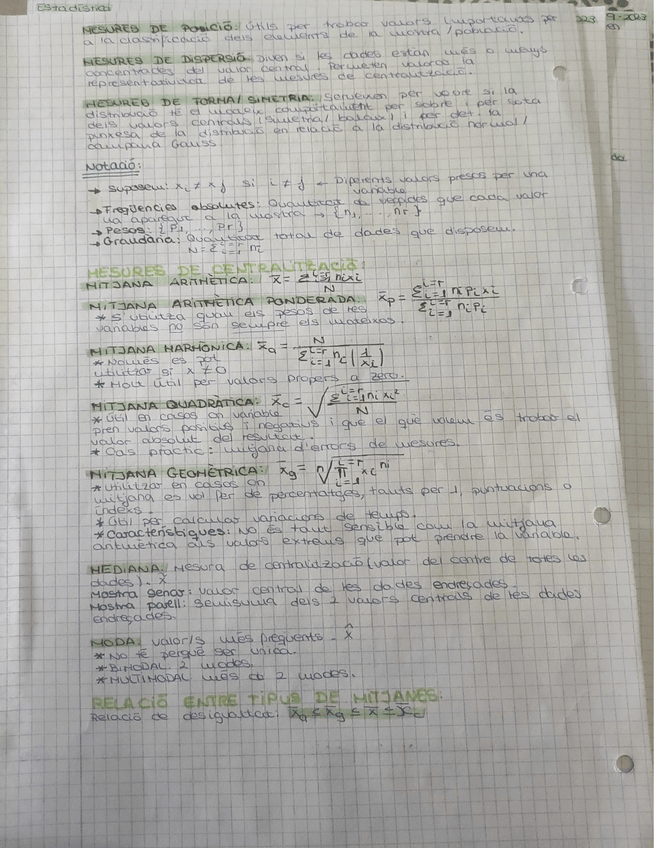 Estadística
MESURES DE POSICIÓ: útils per trobar valors importants per
a la classificació dels elements de la mostra/població.
MESURES DE DISPERSIÓ: Diuen si les dades estan més o menys
concentrades del valor central. Permeten valorar la
representativitat de les mesures de centralització.
MESURES DE FORMA/SIMETRIA: Serveixen per veure si la
distribució té el mateix comportament per sobre i per sota
dels valors centrals (simetria/ biaix) i per det. la
punxesa de la distribució en relació a la distribució normal/
campana Gauss.
Notació:
→ Suposem: xi ≠ xj si i ≠ j ← Diferents valors presos per una
variable
→ Freqüències absolutes: Quantitat de vegades que cada valor
ha aparegut a la mostra → {n1, ..., nr}
→ Pesos: {P1, ..., Pr}
→ Grandària: Quantitat total de dades que disposem.
N = Σ i=1 i=r ni
MESURES DE CENTRALITZACIÓ:
MITJANA ARITMÈTICA: x̄ = Σ i=1 i=r ni xi / N
MITJANA ARITMÈTICA PONDERADA. x̄p = Σ i=1 i=r ni pi xi / Σ i=1 i=r ni pi
* S'utilitza quan els pesos de les
variables no són sempre els mateixos.
MITJANA HARMÒNICA: x̄a = N / Σ i=1 i=r ni (1/xi)
* Només es pot
utilitzar si x ≠ 0
* Molt útil per valors propers a zero.
MITJANA QUADRÀTICA: x̄c = √(Σ i=1 i=r ni xi² / N)
* Útil en casos on variable
pren valors positius i negatius i que el que volem és trobar el
valor absolut del resultat.
* Cas pràctic: mitjana d'errors de mesures.
MITJANA GEOMÈTRICA: x̄g = n√(π i=1 i=r xi ni)
* Utilitzar en casos on
mitjana es vol fer de percentatges, tants per 1, puntuacions o
índexs.
* Útil per calcular variacions de temps.
* Característiques: No és tant sensible com la mitjana
aritmètica als valors extrems que pot prendre la variable.
MEDIANA: Mesura de centralització (valor del centre de totes les
dades).
Mostra senar: valor central de les dades endreçades.
Mostra parell: Semisuma dels 2 valors centrals de les dades
endreçades.
MODA: valor/s més freqüents - x̂
* No té perquè ser única.
* BIMODAL: 2 modes.
* MULTIMODAL més de 2 modes.
RELACIÓ ENTRE TIPUS DE MITJANES:
Relació de desigualtat: x̄a ≤ x̄g ≤ x̄ ≤ x̄c